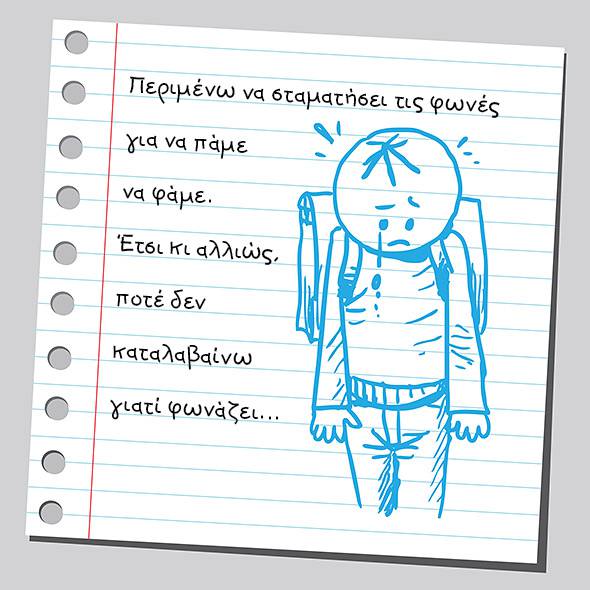 Περιμένω να σταματήσει τις φωνές
για να πάμε
να φάμε.
Έτσι κι αλλιώς,
ποτέ δεν
καταλαβαίνω
γιατί φωνάζει...